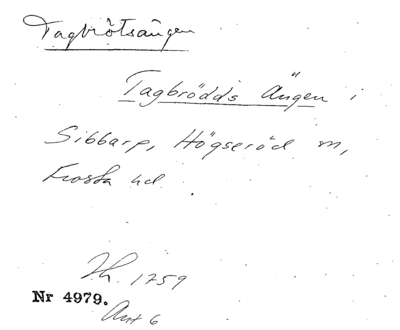 Tagbrötsängen
Tagbrödds Ängen i
Sibbarp, Högseröd m,
Frosta hd.
Lh. 1759
Nr 4979.
Akt 6